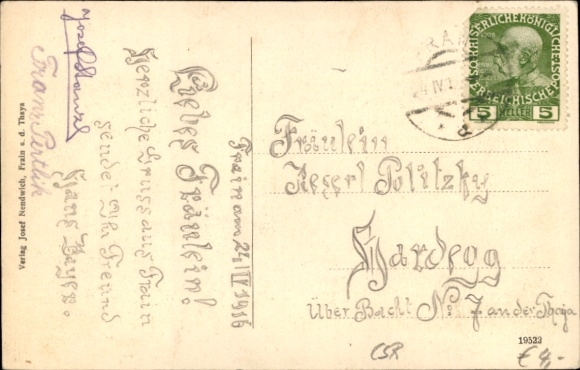 Frain am 24/IV 1916
Liebes Fräulein!
Herzliche Grüsse aus Frain
sendet Ihr Freund
Hans
Josef
Franz
Verlag Josef Nendwich, Frain a. d. Thaya
KAISERLICHE KÖNIGLICHE
ÖSTERREICHISCHE POST
5 HELLER 5
FRAIN
24 IV
Fräulein
Reserl Politzky
Hardegg
Über Bacht No 7 an der Thaja
19523
CSR
€ 4,-